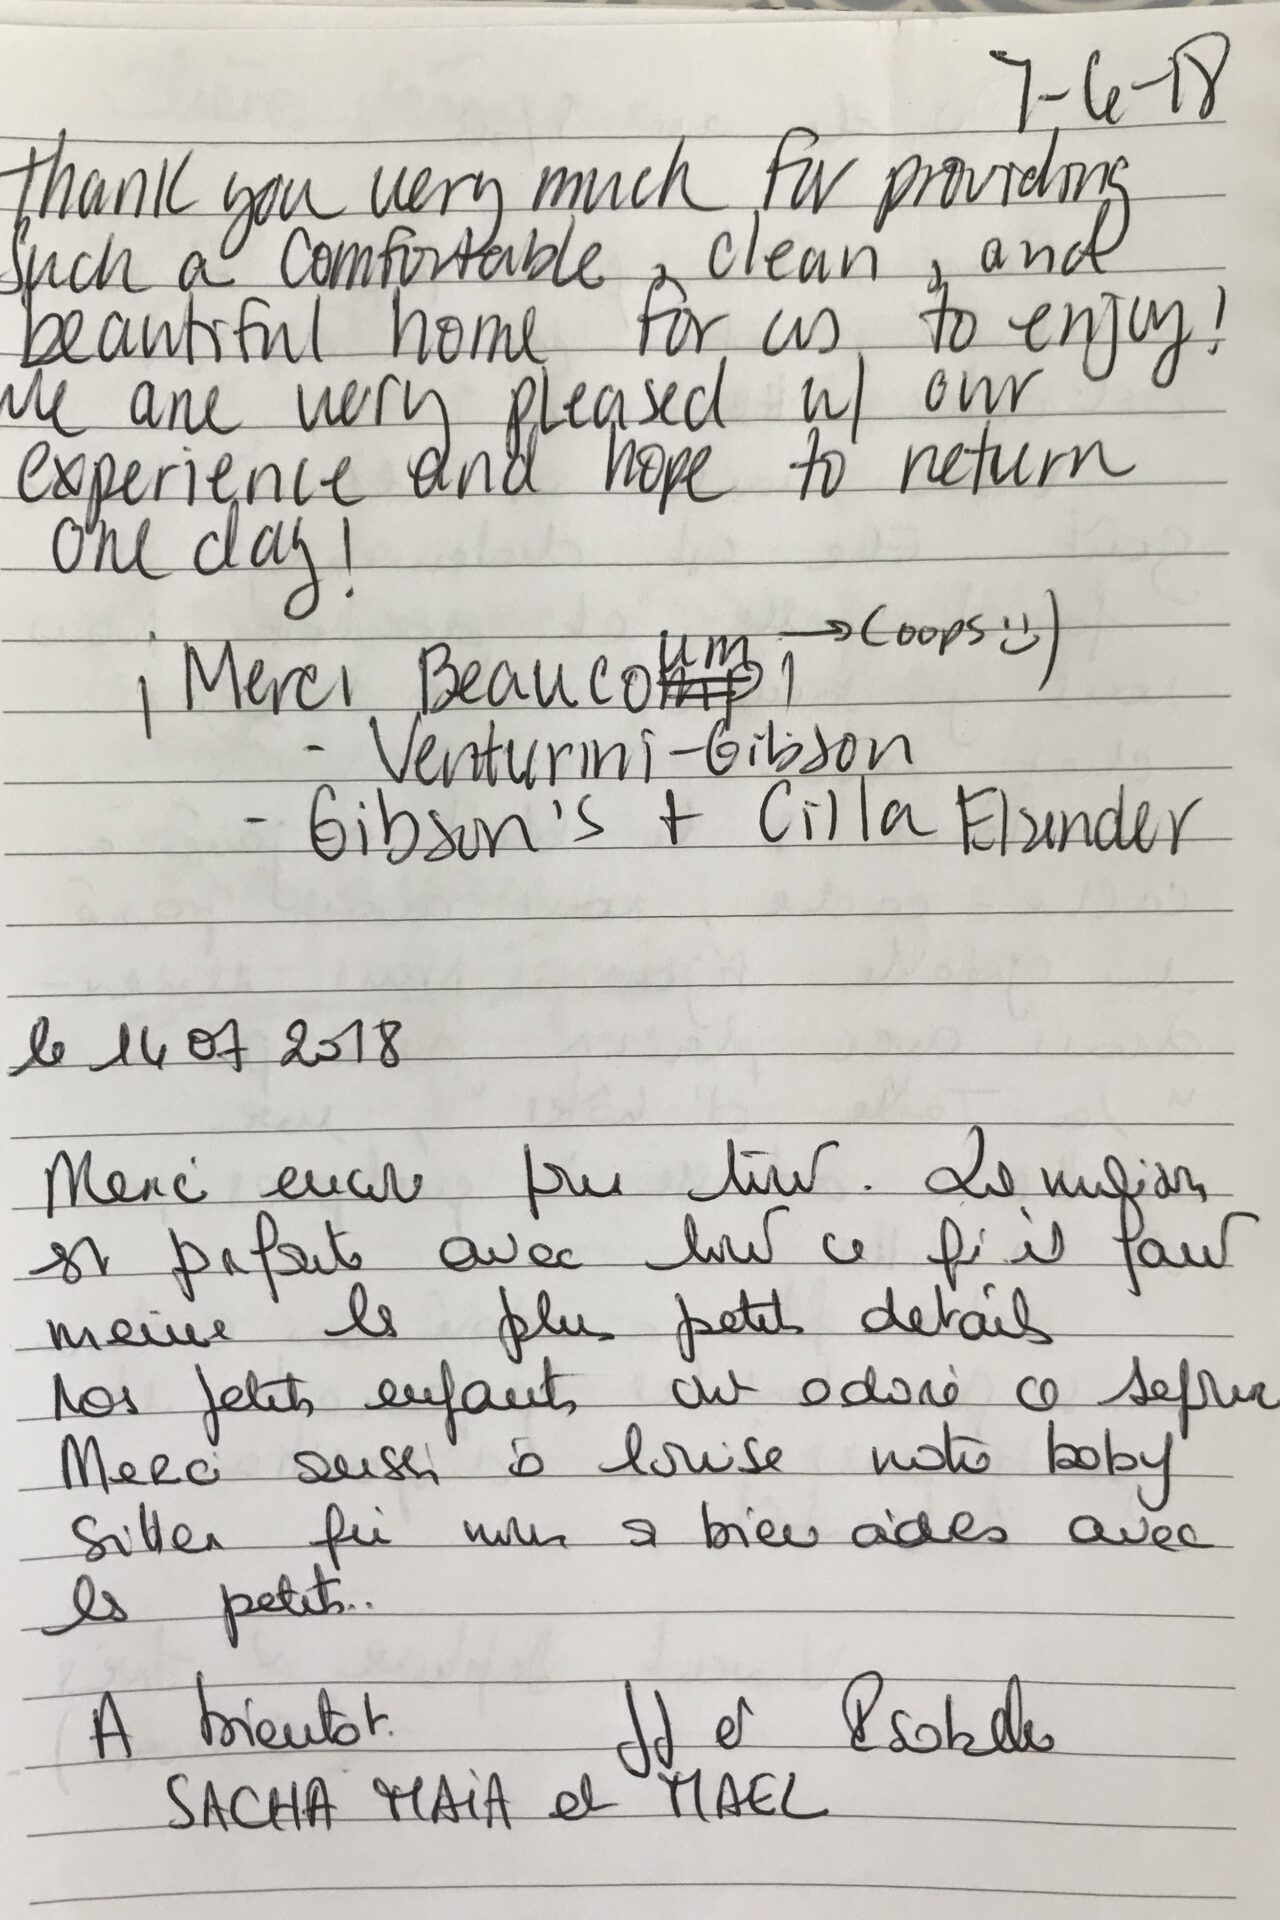 7-6-18
Thank you very much for providing
such a comfortable, clean, and
beautiful home for us to enjoy!
We are very pleased w/ our
experience and hope to return
one day!
¡Merci Beaucoum! → (oops :))
- Venturini-Gibson
- Gibson's + Cilla Elander
le 14 07 2018
Merci encore pour tout. La maison
est parfaite avec tout ce qu'il faut
meme les plus petits details
Nos petits enfants ont adoré ce sejour
Merci aussi à Louise notre baby
sitter qui nous a bien aidés avec
les petits..
A bientot. JJ et
SACHA MAIA et MAEL